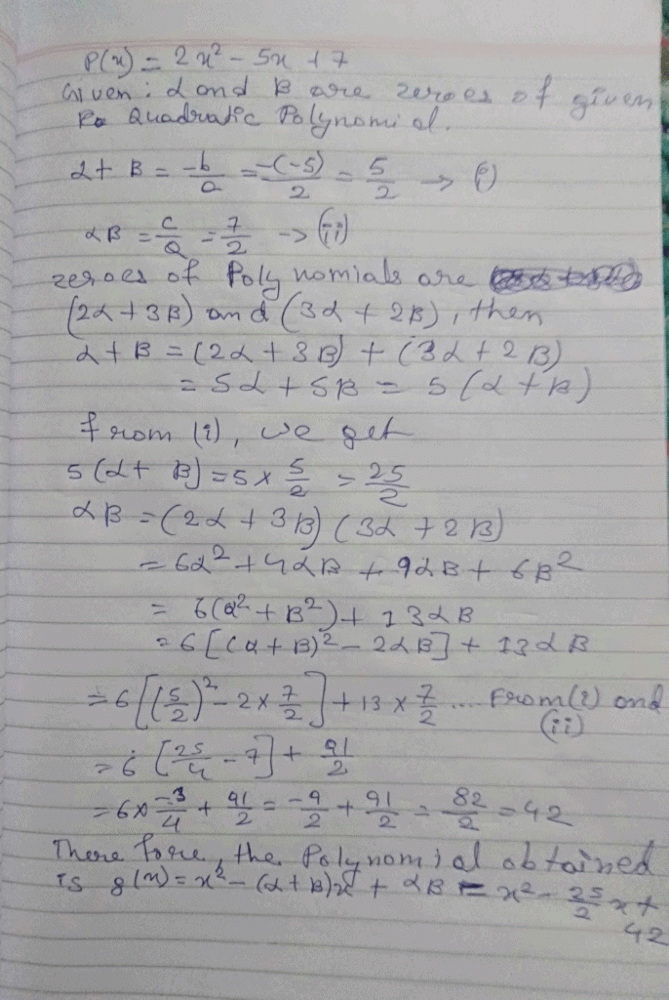 P(x) = 2x² - 5x + 7
Given: α and β are zeroes of given
Po Quadratic Polynomial.
α + β = -b/a = -(-5)/2 = 5/2 -> (i)
αβ = c/a = 7/2 -> (ii)
zeroes of Polynomials are
(2α + 3β) and (3α + 2β), then
α + β = (2α + 3β) + (3α + 2β)
= 5α + 5β = 5(α + β)
from (i), we get
5(α + β) = 5 × 5/2 = 25/2
αβ = (2α + 3β)(3α + 2β)
= 6α² + 4αβ + 9αβ + 6β²
= 6(α² + β²) + 13αβ
= 6[(α + β)² - 2αβ] + 13αβ
= 6[(5/2)² - 2 × 7/2] + 13 × 7/2 .... From (i) and (ii)
= 6[25/4 - 7] + 91/2
= 6 × -3/4 + 91/2 = -9/2 + 91/2 = 82/2 = 42
There fore, the Polynomial obtained
is g(x) = x² - (α + β)x + αβ = x² - 25/2 x +
42